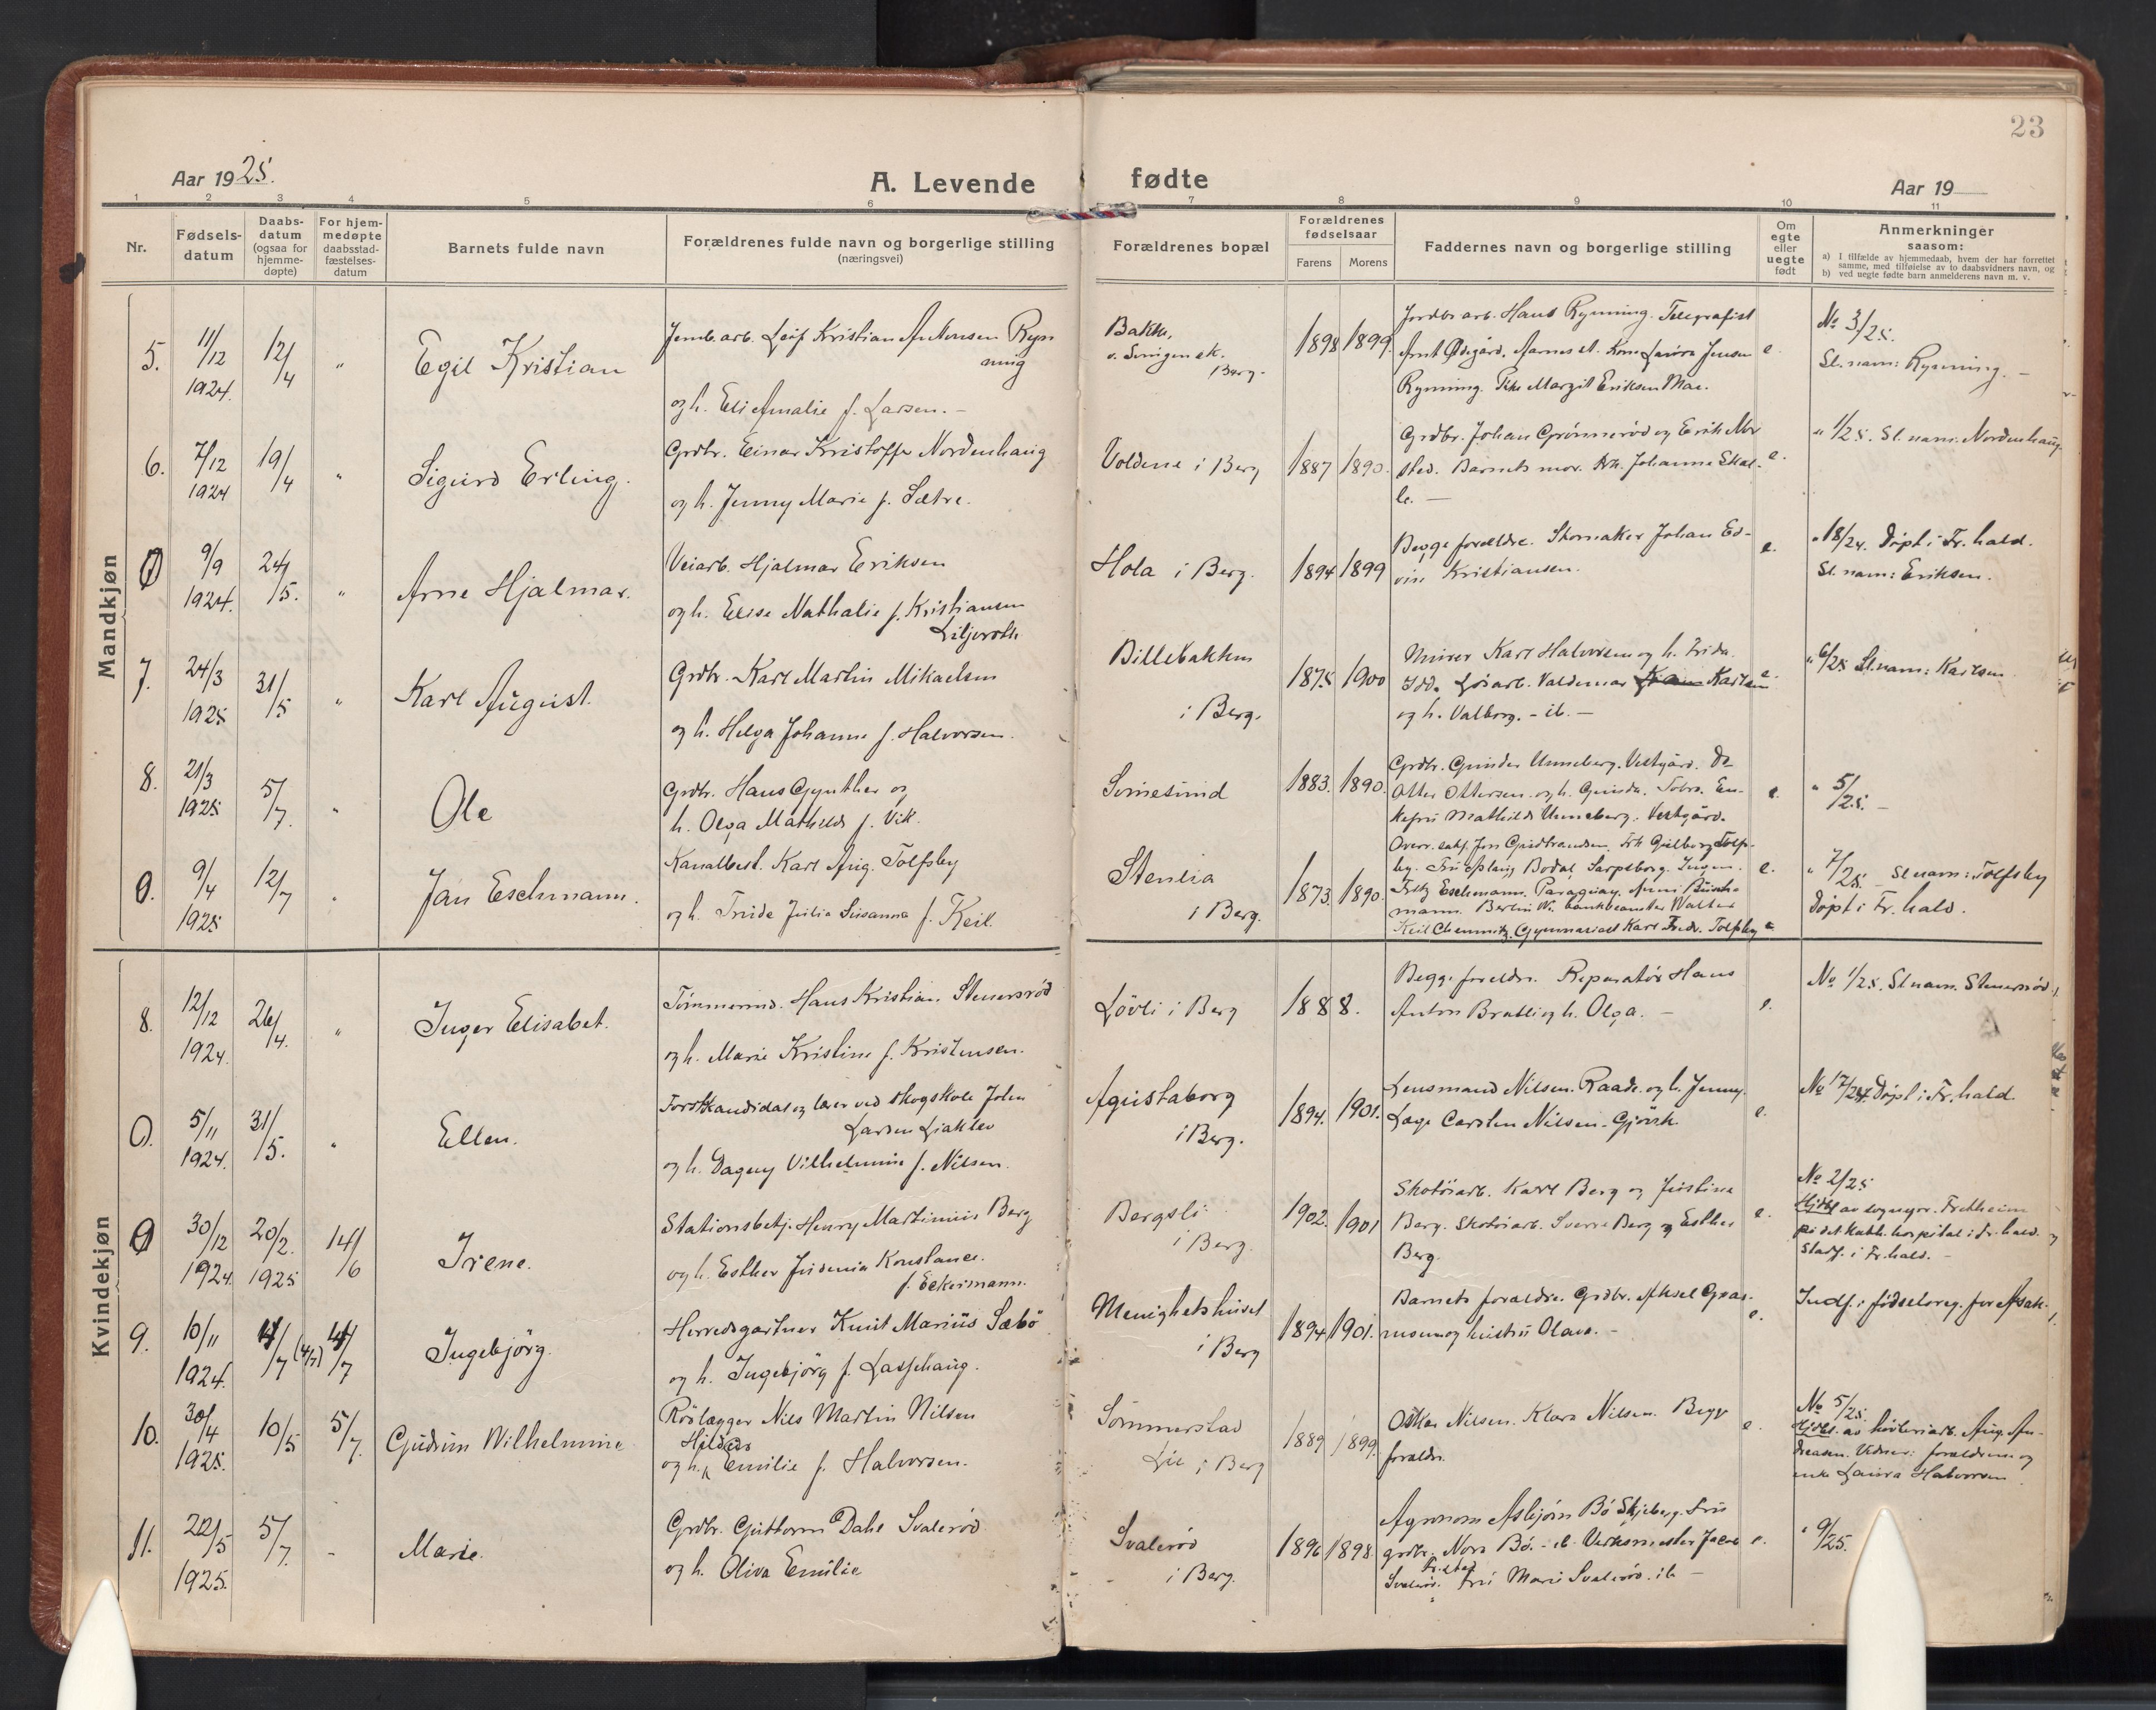 23
Aar 1925.
A. Levende fødte
Aar 19
1 2 3 4 5 6 7 8 9 10 11
Nr.
Fødsels-
datum
Daabs-
datum
(ogsaa for
hjemme-
døpte)
For hjem-
medøpte
daabsstad-
fæstelses-
datum
Barnets fulde navn
Forældrenes fulde navn og borgerlige stilling
(næringsvei)
Forældrenes bopæl
Forældrenes
fødselsaar
Farens Morens
Faddernes navn og borgerlige stilling
Om
egte
eller
uegte
født
Anmerkninger
saasom:
a) I tilfælde av hjemmedaab, hvem der har forrettet
samme, med tilføielse av to daabsvidners navn, og
b) ved uegte fødte barn anmelderens navn m. v.
Mandkjøn
5.
11/12
1924.
12/4
"
Egil Kristian
Jernb.arb. Leif Kristian Antonsen Ryn
ning
og h. Eli Amalie f. Larsen. -
Bakke,
Berg.
1898 1899.
Jordbr arb. Hans Rynning. Telegrafist
Arnt Ødegård, Aarnes st. Kone Laura Jensen
Rynning. Pike Margit Eriksen Mae.
e.
No 3/25.
Sl.navn: Rynning. -
6.
7/12
1924
19/4
"
Sigurd Erling.
Grdbr. Einar Kristoffer Nordenhaug
og h. Jenny Marie f. Sætre.
Voldene i Berg
1887 1890.
Grdbr. Johan Grönneröd og Erik Nor
sted. Barnets mor. Frk. Johanne Skal-
le. -
e.
" 1/25. Sl. navn. Nordenhaug.
0
9/9
1924.
24/5.
"
Arne Hjalmar.
Veiarb. Hjalmar Eriksen
og h. Elise Nathalie f. Kristiansen
Liljeroth
Hola i Berg.
1894 1899
Begge foreldre. Skomaker Johan Ed-
vin Kristiansen.
e.
" 18/24. Döpt i Fr. hald.
Sl. navn: Eriksen.
7.
24/3
1925
31/5
"
Karl August.
Grdbr. Karl Martin Mikaelsen
og h. Helga Johanne f. Halvorsen.
Billebakken
i Berg.
1875 1900
Murer Karl Halvorsen og h. Frida.
Idd. Lösarb. Valdemar Karlsen
og h. Valborg. - ib. -
e.
" 6/25 Sl.navn: Karlsen
8.
21/3
1925
5/7.
"
Ole
Grdbr. Hans Gynther og
h. Olga Mathilde f. Vik.
Sinesund
1883. 1890.
Grdbr. Gunder Unneberg. Vestgård. Do
Otter Ottersen og h. Gunda. Sobro. En-
kefru Mathilde Unneberg. Vestgård.
e.
" 5/25. -
0.
9/4
1925
12/7
"
Jan Eschmann.
Kanalbest. Karl Aug. Tolfsby
og h. Trude Julia Susanna f. Keil.
Stenlia
i Berg.
1873. 1890.
Overr.sakf. Jon Gudbrandsen. Frk Gulborg Tolfs-
by. Fru Aslaug Bodal, Sarpsborg. Ingen.
Fritz Eschmann. Paraguay. Anni Busch-
mann. Berlin W. bankbeamter Walter
Keil Chemnitz. Gymnasiast Karl Fredr. Tolfsby
e.
" 7/25 Sl navn: Tolfsby
Döpt i Fr. hald.
Kvindekjøn
8.
12/12
1924.
26/4.
"
Inger Elisabet.
Tömmermd. Hans Kristian Stenersröd
og h. Marie Kristine f. Kristensen.
Lövli i Berg
1888.
Begge foreldre. Reparatör Hans
Anton Bratli og h. Olga. -
e.
No 1/25. Sl navn. Stenersröd.
0.
5/11
1924.
31/5.
"
Ellen.
Forstkandidat og lærer ved skogskole John
Larsen Liaklev
og h. Dagny Vilhelmine f. Nilsen.
Agustaborg
i Berg.
1894. 1901.
Lensmand Nilsen. Raade. og h. Jenny.
Lage Carsten Nilsen. Gjövik
e.
No 17/24. Döpt i Fr. hald.
0
30/12
1924.
20/2.
1925
14/6
Irene.
Stationsbetj. Henry Martinius Berg
og h. Esther Konstance
f. Eckermann.
Bergsli
i Berg.
1902. 1901
Skotöiarb. Karl Berg og Justine
Berg. Skotöiarb. Sverre Berg og Esther
Berg.
e.
No 2/25
Hjdbt av sognepr. Fretheim
på det kath. hospital i Fr. hald.
Stadf. i Fr. hald. -
9.
10/11
1924.
4/7 (4/7)
Ingebjörg.
Herredsgartner Knut Marius Sæbö
og h. Ingebjörg f. Lasshaug.
Menighetshuset
i Berg
1894 1901.
Barnets foreldre. Grdbr. Aksel Gras-
musen og hustru Olava. -
e.
Indf. i födselsreg. for Asak.
10.
30/4
1925.
10/5
5/7.
Gudrun Wilhelmine
Rörlægger Nils Martin Nilsen
Hildur
og h. Emilie f. Halvorsen.
Sommerstad
Lie i Berg
1889 1899.
Oskar Nilsen. Klara Nilsen. Begge
foreldre.
e.
No 5/25.
Hjdbt. av hövleriarb. Aug. An-
dreasen. Vidner: foreldrene og
enke Laura Halvorsen
11.
22/5
1925.
5/7.
-
Marie.
Grdbr. Guttorm Dahl Svaleröd
og h. Oliva Emilie
Svaleröd
i Berg.
1896 1898.
Agronom Asbjörn Bö Skjeberg. Fru
grdbr. Nora Bö. - ib. Verksmester Jacob
Fr.stad
Svaleröd. Fru Marie Svaleröd. ib -
e.
" 9/25.